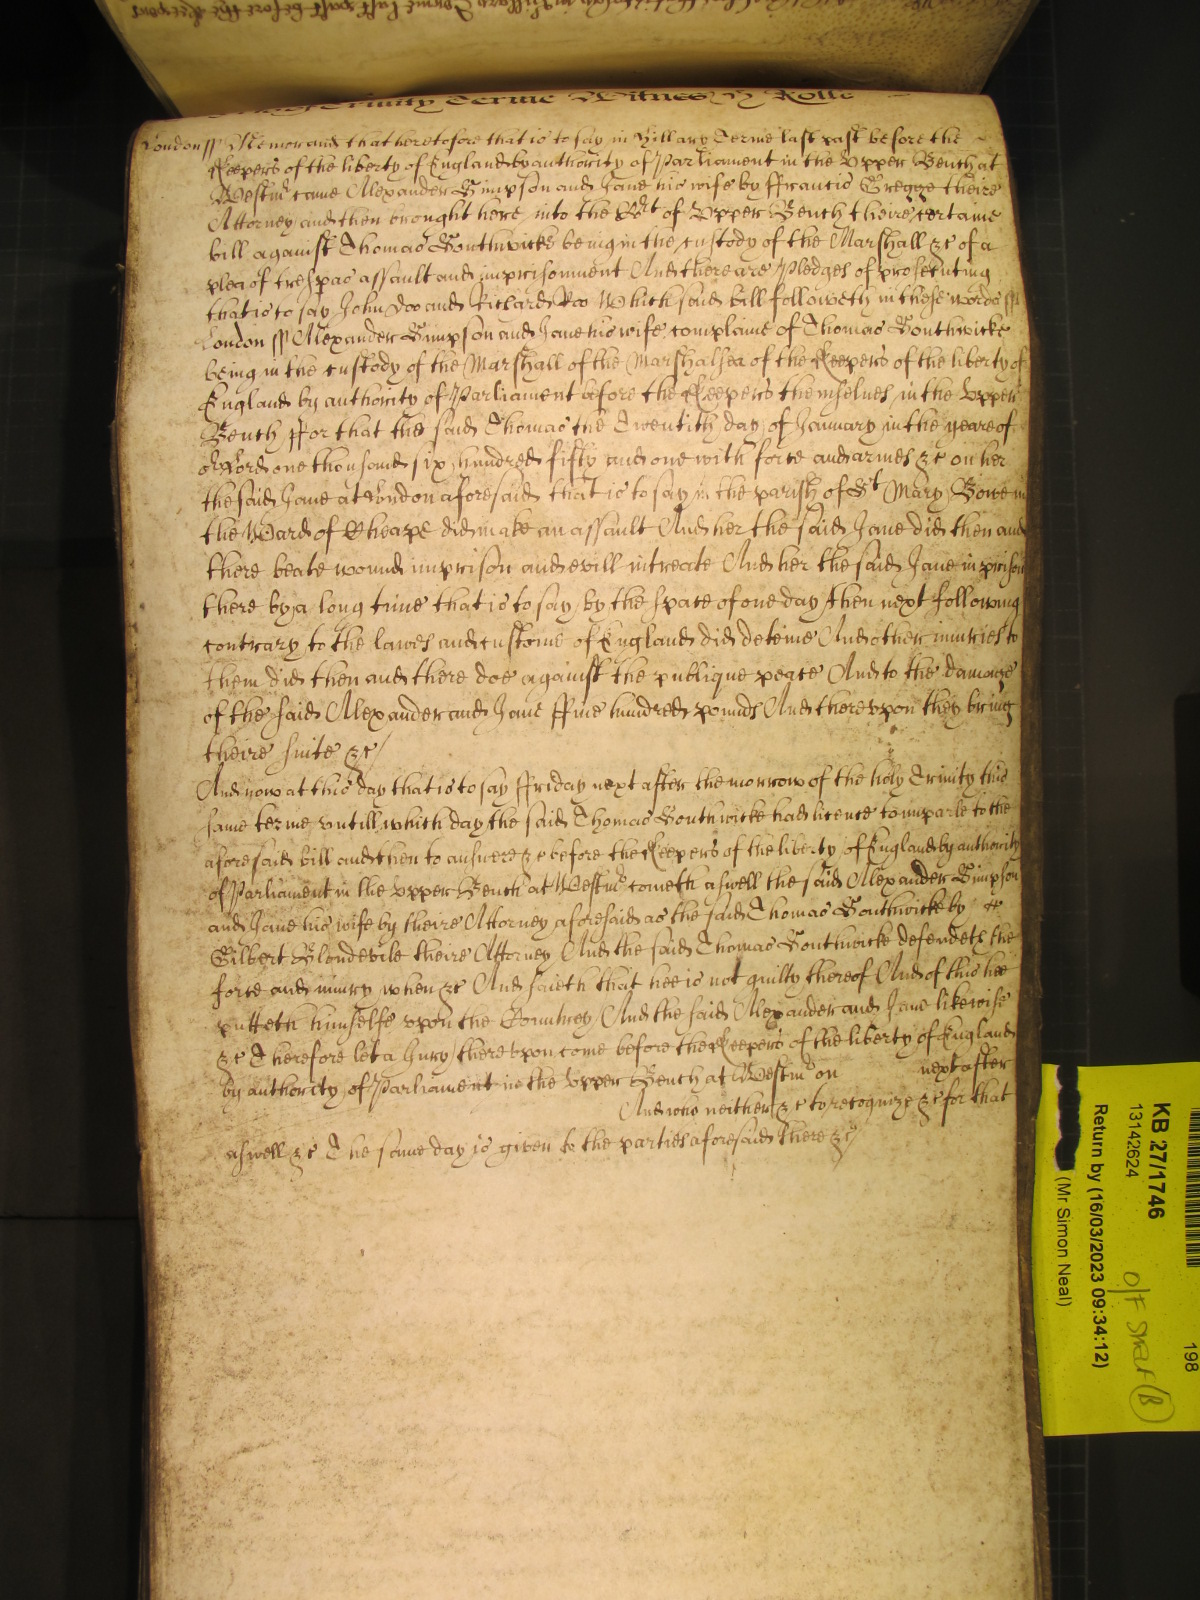 Trinity Terme Witnes H Rolle
London ss Memorand that heretofore that is to say in Hillary Terme last past before the
Keepers of the liberty of England by authority of Parliament in the Upper Bench at
Westmr came Alexander Simpson and Jane his wife by ffrancis Gregge theire
Attorney and then brought here into the Crt of Upper Bench theire certaine
bill against Thomas Southwicke being in the custody of the Marshall &c of a
plea of trespas assault and imprisonment And there are Pledges of prosecuting
that is to say John Doo and Richard Roo Which said bill followeth in these words ss
London ss Alexander Simpson and Jane his wife complaine of Thomas Southwicke
being in the custody of the Marshall of the Marshalsea of the Keepers of the liberty of
England by authority of Parliament before the Keepers themselves in the Upper
Bench ffor that the said Thomas the Twentith day of January in the yeare of
our Lord one thousand six hundred fifty and one with force and armes &c on her
the said Jane at London aforesaid that is to say in the parish of St Mary Bowe in
the Ward of Cheape did make an assault And her the said Jane did then and
there beate wound imprison and evill intreate And her the said Jane in prison
there by a long time that is to say by the space of one day then next following
contrary to the lawes and customs of England did deteine And other iniuries to
them did then and there doe against the publique peace And to the damage
of the said Alexander and Jane ffive hundred pounds And thereupon they bring
theire suite &c
And now at this day that is to say ffriday next after the morrow of the holy Trinity this
same terme untill which day the said Thomas Southwicke had licence to imparle to the
aforesaid bill and then to answere &c before the Keepers of the liberty of England by authority
of Parliament in the Upper Bench at Westmr cometh aswell the said Alexander Simpson
and Jane his wife by theire Attorney aforesaid as the said Thomas Southwicke by
Gilbert Blondevile theire Attorney And the said Thomas Southwicke defendeth the
force and iniury when &c And saieth that hee is not guilty thereof And of this hee
putteth himselfe upon the Countrey And the said Alexander and Jane likewise
&c Therefore let a Jury thereupon come before the Keepers of the liberty of England
by authority of Parliament in the Upper Bench at Westmr on next after
And who neither &c to recognize &c for that
aswell &c The same day is given to the parties aforesaid there &c
KB 27/1746
13142624
Return by (16/03/2023 09:34:12)
(Mr Simon Neal)
198
O/F
B